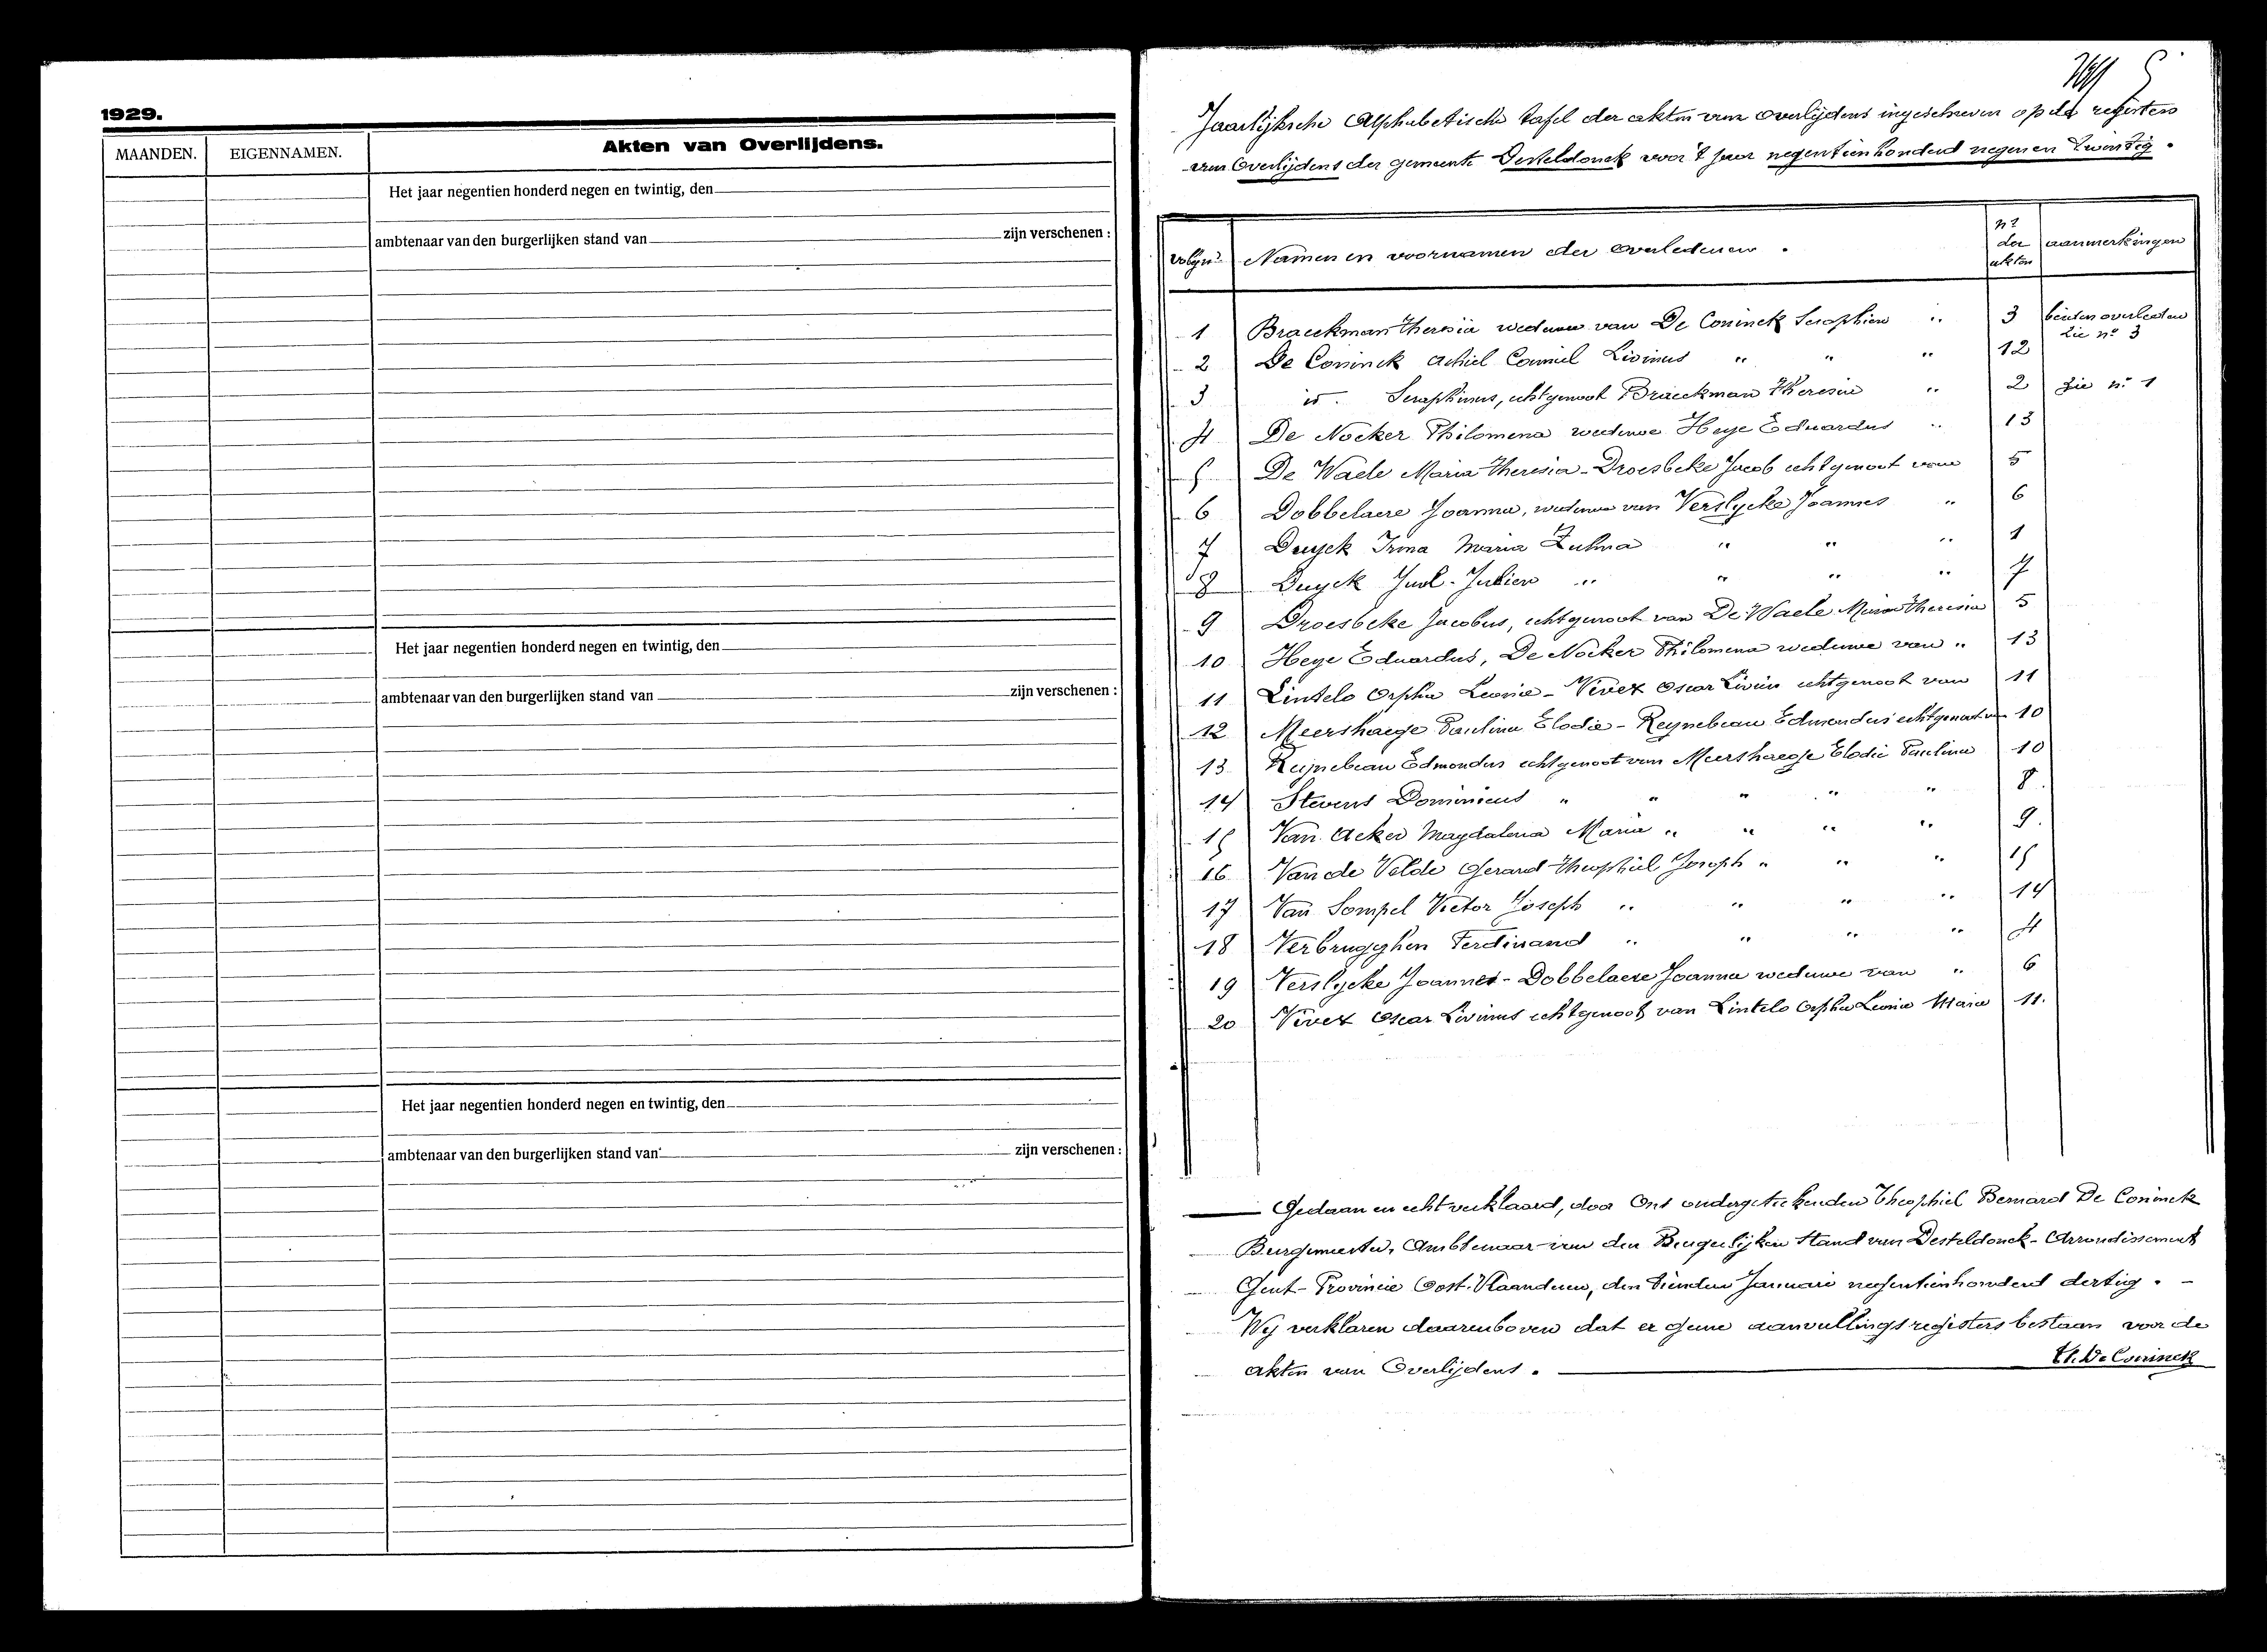 1929.
MAANDEN. EIGENNAMEN. Akten van Overlijdens.
Het jaar negentien honderd negen en twintig, den
ambtenaar van den burgerlijken stand van zijn verschenen :
Het jaar negentien honderd negen en twintig, den
ambtenaar van den burgerlijken stand van zijn verschenen :
Het jaar negentien honderd negen en twintig, den
ambtenaar van den burgerlijken stand van zijn verschenen :
Jaarlijksche Alphabetische tafel der akten van overlijdens ingeschreven op de registers
van Overlijdens der gemeente Desteldonck voor 't jaar negentienhonderd negen en twintig.
volgnr. Namen en voornamen der overledenen. nr der akten aanmerkingen
1 Braeckman Theresia weduwe van De Coninck Seraphien " 3 beiden overleden zie no 3
2 De Coninck Achiel Camiel Livinus " " " 12
3 id. Seraphinus, echtgenoot Braeckman Theresia " 2 zie no 1
4 De Nocker Philomena weduwe Heye Eduardus " 13
5 De Waele Maria Theresia - Droesbeke Jacob echtgenoot van 5
6 Dobbelaere Joanna, weduwe van Verslycke Joannes " 6
7 Duyck Irma Maria Zulma " " " 1
8 Duyck Jul. Julien " " " " 7
9 Droesbeke Jacobus, echtgenoot van De Waele Maria Theresia 5
10 Heye Eduardus, De Nocker Philomena weduwe van " 13
11 Lintelo Orpha Leonie - Vivex Oscar Livin echtgenoot van 11
12 Meershaege Paulina Elodie - Reynebeau Edmondus echtgenoot van 10
13 Reynebeau Edmondus echtgenoot van Meershaege Elodie Paulina 10
14 Stevens Dominicus " " " " " 8.
15 Van Acker Magdalena Maria " " " " 9.
16 Van de Velde Gerard Theophiel Joseph " " " 15
17 Van Sompel Victor Joseph " " " " 14
18 Verbrugghen Ferdinand " " " " 4
19 Verslycke Joannes - Dobbelaere Joanna weduwe van " 6
20 Vivex Oscar Livinus echtgenoot van Lintelo Orpha Leonie Maria 11.
Gedaan en echt verklaard, door Ons ondergeteekenden Theophiel Bernard De Coninck
Burgemeester, Ambtenaar van den Burgerlijken Stand van Desteldonck - Arrondissement
Gent - Provincie Oost-Vlaanderen, den tienden Januari negentienhonderd dertig. -
Wij verklaren daarenboven dat er geene aanvullingsregisters bestaan voor de
akten van Overlijdens.
Th. De Coninck